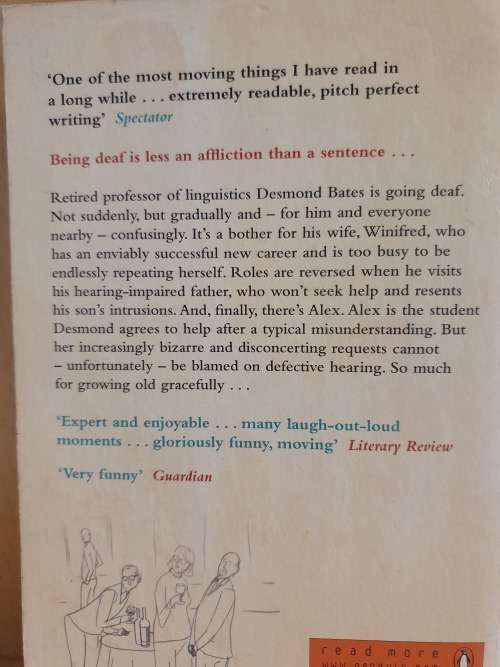 ‘One of the most moving things I have read in
a long while . . . extremely readable, pitch perfect
writing’ Spectator
Being deaf is less an affliction than a sentence . . .
Retired professor of linguistics Desmond Bates is going deaf.
Not suddenly, but gradually and – for him and everyone
nearby – confusingly. It’s a bother for his wife, Winifred, who
has an enviably successful new career and is too busy to be
endlessly repeating herself. Roles are reversed when he visits
his hearing-impaired father, who won’t seek help and resents
his son’s intrusions. And, finally, there’s Alex. Alex is the student
Desmond agrees to help after a typical misunderstanding. But
her increasingly bizarre and disconcerting requests cannot
– unfortunately – be blamed on defective hearing. So much
for growing old gracefully . . .
‘Expert and enjoyable . . . many laugh-out-loud
moments . . . gloriously funny, moving’ Literary Review
‘Very funny’ Guardian
read more